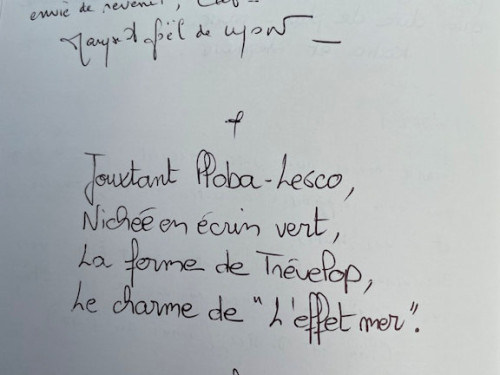 envie de revenir,
de Lyon
Jouxtant Ploba-Lesco,
Nichée en écrin vert,
La forme de TrévePop,
Le charme de "L'effet mer".